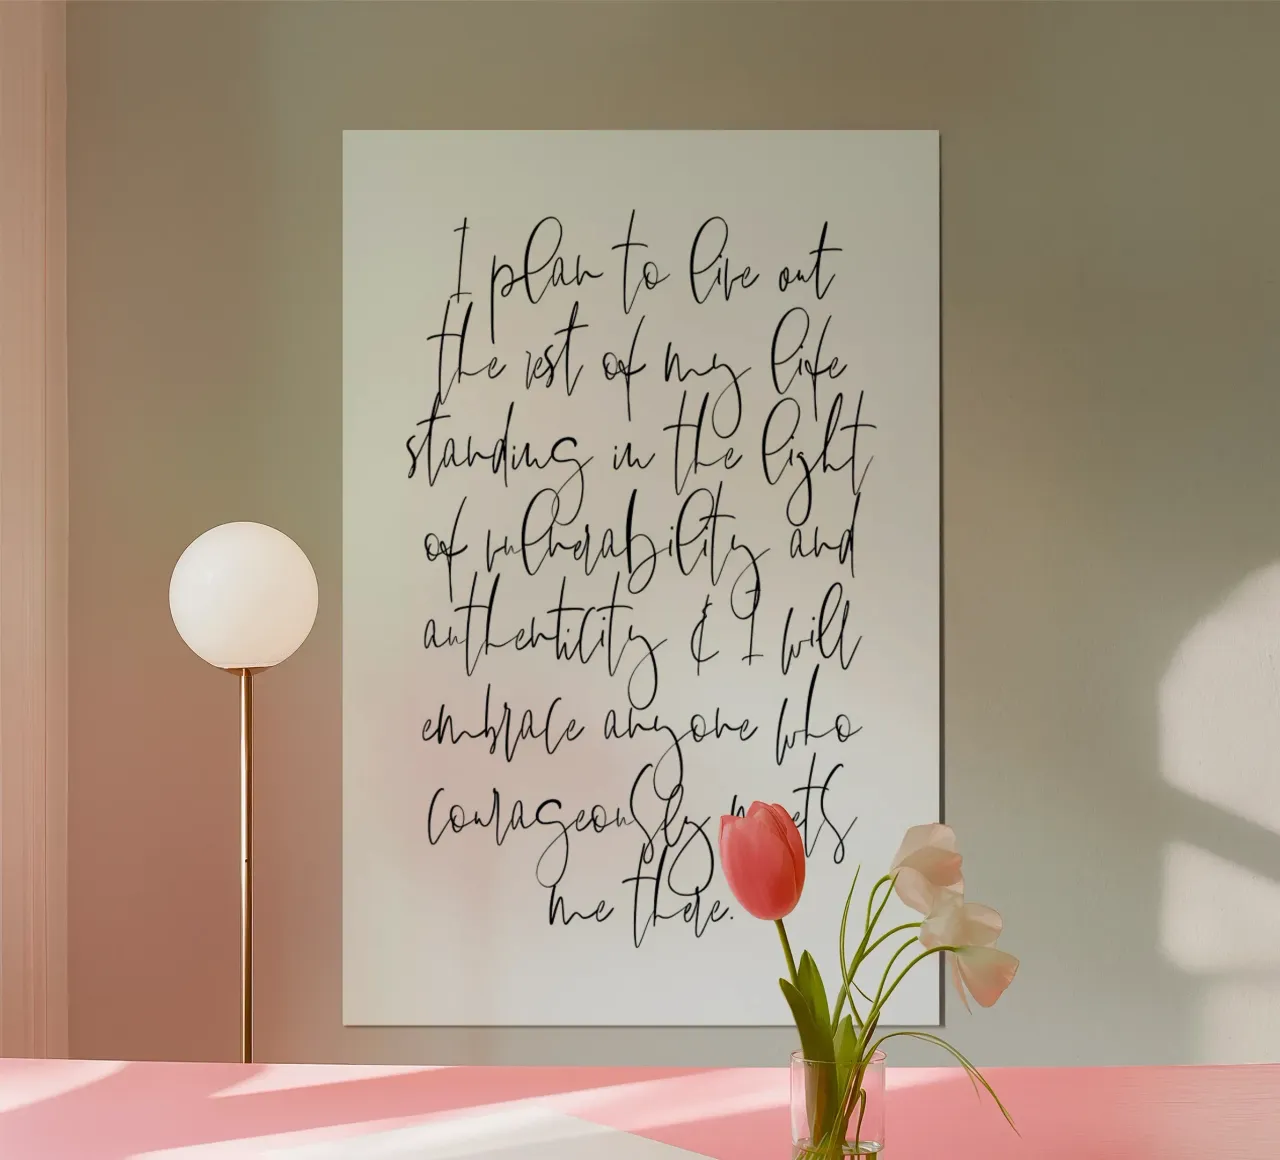 I plan to live out
the rest of my life
standing in the light
of vulnerability and
authenticity & I will
embrace anyone who
courageously meets
me there.